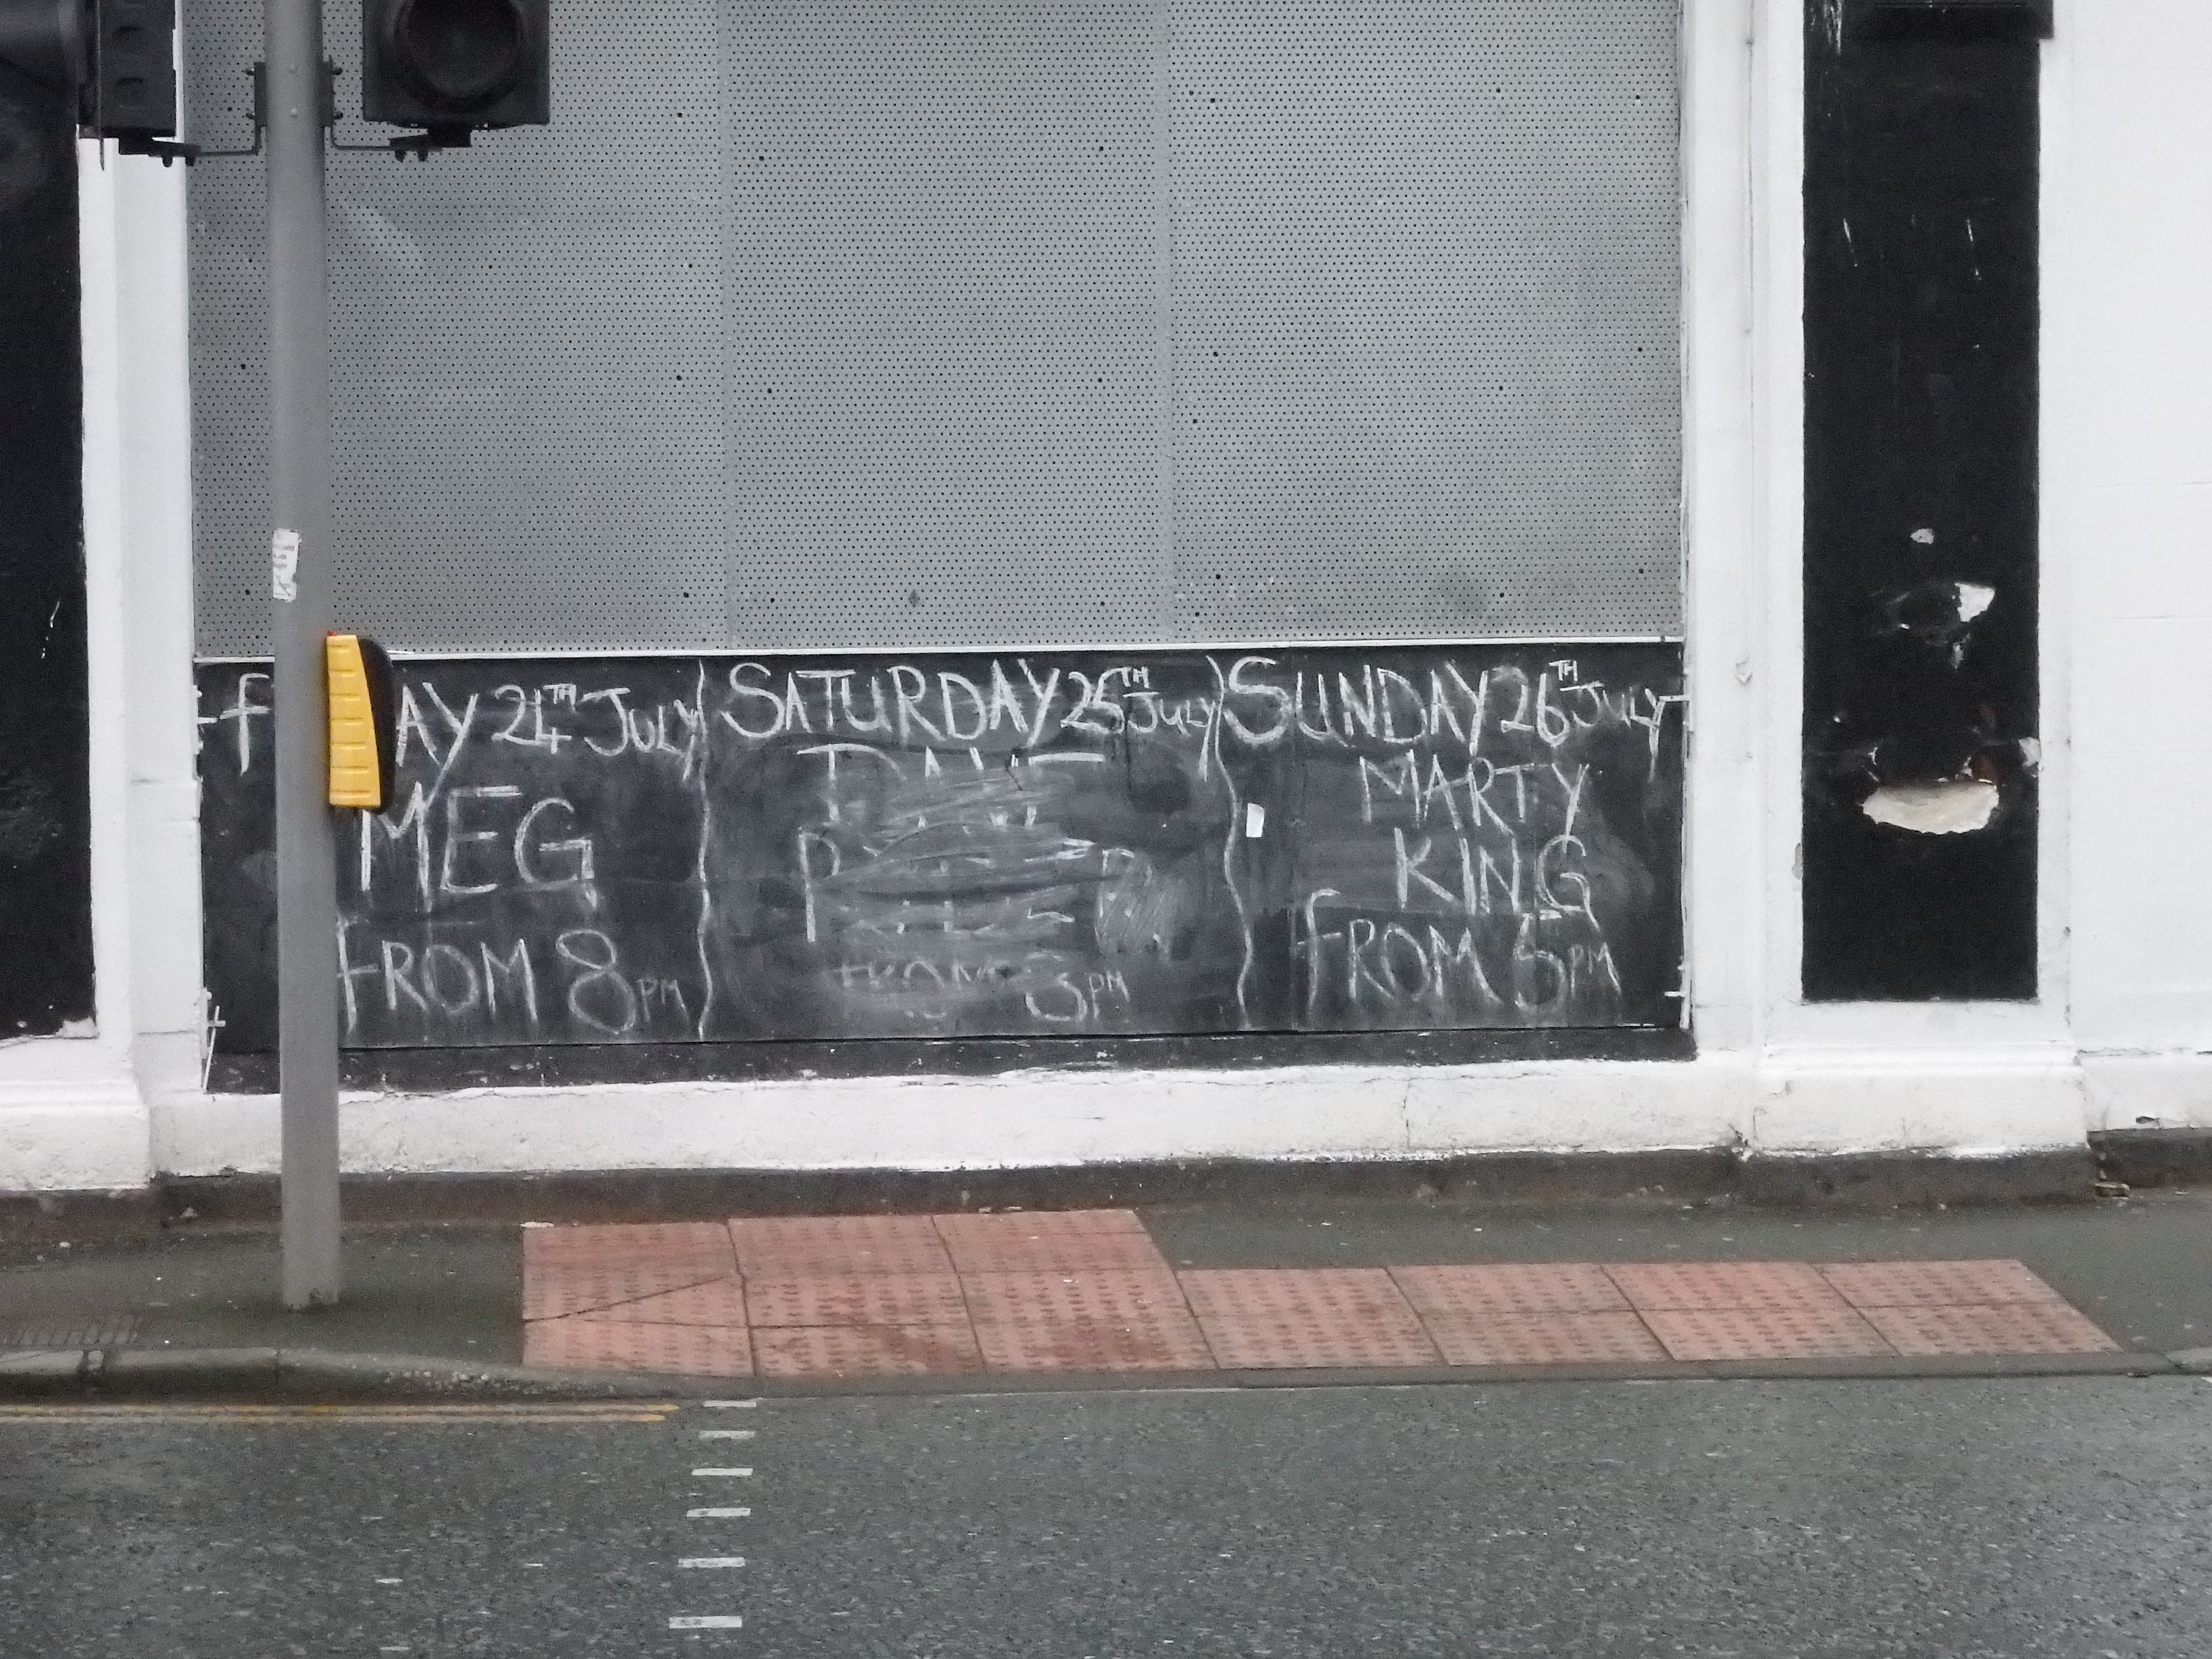 F AY 24TH JULY
MEG
FROM 8PM
SATURDAY 25TH JULY
PM
SUNDAY 26TH JULY
MARTY
KING
FROM 5PM